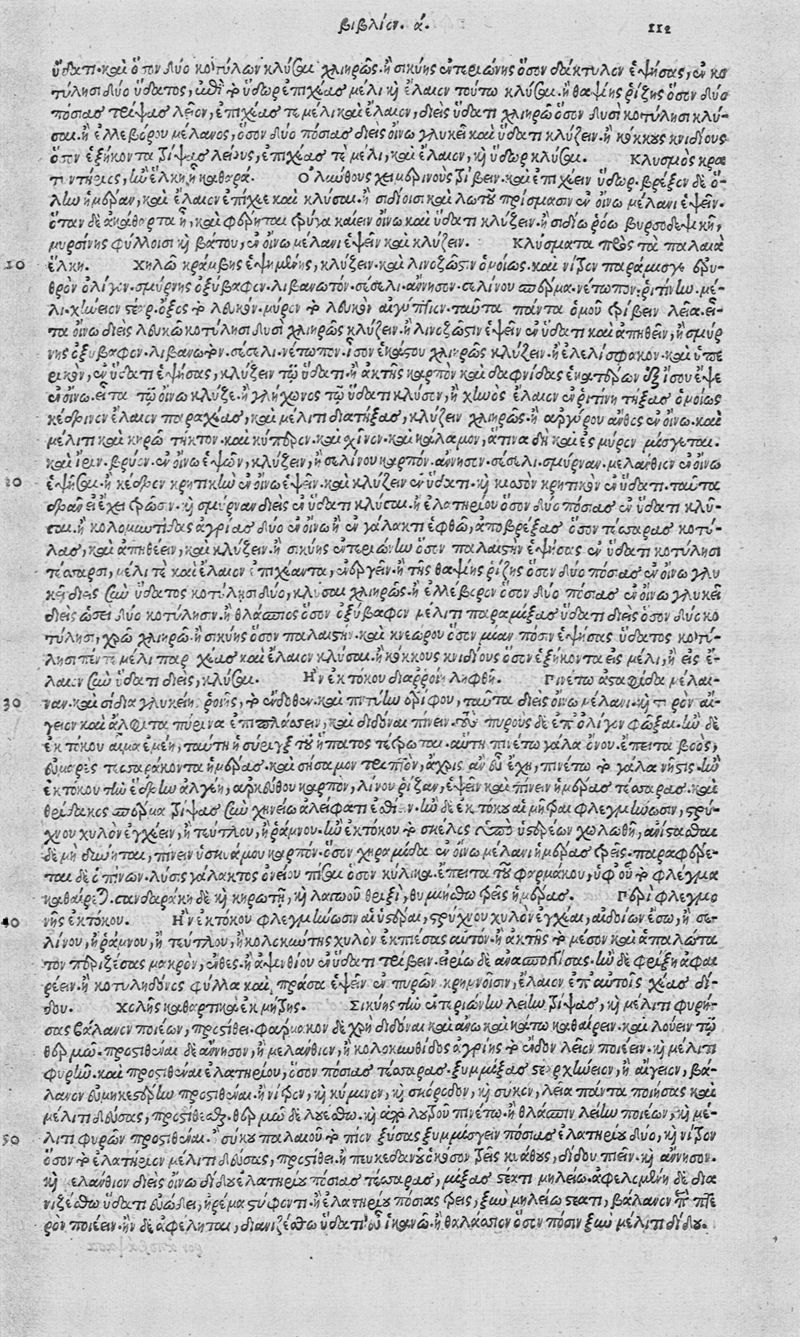 βιβλίον. ά. 112
ὕδατι. καὶ ὅσον δύο κοτύλων κλύσαι χλιηρῶς. ἢ σικύης ἐντεριώνης ὅσον δάκτυλον ἑψήσας, ἐν κο
τύλῃσι δύο ὕδατος, τὸ ὕδωρ ἐπιχέας μέλι κỳ ἔλαιον τούτω κλύσαι. ἢ θαψίης ῥίζης ὅσον δύο
πόσιας τρίψας λεῖον, ἐπιχέας τε μέλι καὶ ἔλαιον, διεὶς ὕδατι χλιηρῶ ὅσον δυσὶ κοτύλῃσι κλύ-
σαι. ἢ ἐλλεβόρου μέλανος, ὅσον δύο πόσιας διεὶς οἴνω γλυκεῖ καὶ ὕδατι κλύζειν. ἢ κόκκους κνιδίους
ὅσον ἑξήκοντα τρίψας λείους, ἐπιχέας τὲ μέλι, καὶ ἔλαιον, κỳ ὕδωρ κλύσαι. Κλυσμὸς κρα
τιντήριος, ἢν ἕλκη ᾖ καθαρά. Ὀλύνθους χειμερινοὺς τρίβειν. καὶ ἐπιχεῖν ὕδωρ. βρέξον δὲ ὅ-
λην ἡμέραν, καὶ ἔλαιον ἐπίχεε καὶ κλύσαι. ἢ σιδίοισι καὶ λωτοῦ πρίσμασιν ἐν οἴνω μέλανι ἑψεῖν.
ὅταν δὲ ἀκάθαρτα ᾖ, καὶ φθορῆται τρύγα καίειν οἴνω καὶ ὕδατι κλύζειν. ἢ σιδίω ῥόω βυρσοδεψικῆ,
μυρσίνης φύλλοισι κỳ βάτου, ἐν οἴνω μέλανι ἑψεῖν καὶ κλύζειν. Κλύσματα πρὸς τὰ παλαιὰ
10 ἕλκη. Χηλῶ κράμβης ἑψημένης, κλύζειν. καὶ λινοζῶστιν ὁμοίως. καὶ νίτρον παράμισγε ἐρυ-
θρὸν ὀλίγον. σμύρνης ὀξύβαφον. λιβανωτόν. σέσελι. ἄννησον. σελίνου σπέρμα. νέτωπον. ῥιτίνην. μέ-
λι. χήνειον στέαρ. ὄξος τὸ λευκόν. μύρον τὸ λευκὸν αἰγύπτιον. ταῦτα πάντα ὁμοῦ τρίβειν λεῖα. εἶ-
τα οἴνω διεὶς λευκῶ κοτύλῃσι δυσὶ χλιηρῶς κλύζειν. ἢ λινοζῶστιν ἑψεῖν ἐν ὕδατι καὶ ἀπηθεῖν, ἢ σμύρ
νης ὀξυβαφον. λιβανωτὸν. σέσελι. νέτωπον. ἴσον ἑκάστου χλιηρῶς κλύζειν. ἢ ἐλελίσφακον. καὶ ὑπε
ρικὸν, ἐν ὕδατι ἑψήσας, κλύζειν τῶ ὕδατι. ἢ ἀκτῆς καρπὸν καὶ δαφνίδας ἑκατέρων ἐξ ἴσου ἕψε
ἐν οἴνω. εἶτα τῶ οἴνω κλύζε. ἢ γλήχωνος τῶ ὕδατι κλῦσον, ἢ χηνὸς ἔλαιον ἐν ῥιτίνῃ τήξας ὁμοίως
κέδρινον ἔλαιον παραχέας, καὶ μέλιτι διατήξας, κλύζειν χλιηρῶς. ἢ ἀργύρου ἄνθος ἐν οἴνω. καὶ
μέλιτι καὶ κηρῶ τηκτόν. καὶ κύπερον. καὶ σχῖνον. καὶ κάλαμον, ἅτινα δὴ καὶ ἐς μύρον μίσγεται.
καὶ ἶριν. βρύον. ἐν οἴνω ἑψῶν, κλύζειν, ἢ σελίνου καρπόν. ἄννησον. σέσελι. σμύρναν. μελάνθιον ἐν οἴνω
20 ἑψῆσαι. ἢ κέδρον κρητικὴν ἐν οἴνω ἑψεῖν. καὶ κλύζειν ἐν ὕδατι. κỳ κισσὸν κρητικὸν ἐν ὕδατι. ταῦτα
δρᾶν εἰ ἔχει τρῶσιν. κỳ σμύρναν διεὶς ἐν ὕδατι κλύσαι. ἢ ἐλατηρίου ὅσον δύο πόσιας ἐν ὕδατι κλῦ-
σαι. ἢ κολοκυντίδας ἀγρίας δύο ἐν οἴνω ἢ ἐν γάλακτι ἑφθῶ, ἀποβρέξας ὅσον τέσσαρας κοτύ-
λας, καὶ ἀπηθέειν, καὶ κλύζειν. ἢ σικύης ἐντεριώνην ὅσον παλαιστὴν ἑψήσας ἐν ὕδατι κοτύλῃσι
τέσσαρσι, μέλι τὲ καὶ ἔλαιον ἐπιχέαντα, ἢ τῆς θαψίης ῥίζης ὅσον δύο πόσιας ἐν οἴνω γλυ
κεῖ διεὶς ξὺν ὕδατος κοτύλῃσι δύο, κλύσαι χλιηρῶς. ἢ ἐλλέβορον ὅσον δύο πόσιας ἐν οἴνω γλυκεῖ
διεὶς ὡσεὶ δύο κοτύλῃσιν. ἢ θλάσπιος ὅσον ὀξύβαφον μέλιτι παραμίξας ὕδατι διεὶς ὅσον δύο κο
τύλῃσι, χρῶ χλιηρῶ. ἢ σικύης ὅσον παλαιστήν. καὶ κνεώρου ὅσον μίαν πόσιν ἑψήσας ὕδατος κοτύ-
λῃσι πέντε μέλι παρ χέας καὶ ἔλαιον κλύσαι. ἢ κόκκους κνιδίους ὅσον ἑξήκοντα εἰς μέλι, ἢ εἰς ἔ-
λαιον ξὺν ὕδατι διεὶς, κλῦσαι. Ἢν ἐκ τόκου διάρροιη ληφθῆ. Πινέτω ἀσταφίδα μέλαι-
30 ναν. καὶ σίδια γλυκείης ῥοιῆς, τὸ ἔνδοθεν. καὶ πιτύην ἐρίφου, ταῦτα διεὶς οἴνω μέλανι. κỳ τυρὸν αἴ-
γειον καὶ ἄλφιτα πύρινα ἐπιπλάσσειν, καὶ διδόναι πίνειν. τοὺς πυροὺς δὲ ἐπ᾽ ὀλίγον φῶξαι. ἢν δὲ
ἐκ τόκου αἷμα ἐμέῃ, ταύτῃ ἡ σύριγξ τοῦ ἥπατος τέτρωται. αὕτη πινέτω γάλα ὄνου. ἔπειτα βοὸς,
τεσσαράκοντα ἡμέρας. καὶ σήσαμον τριπτὸν, ἄχρις ἂν οὗ ἔχῃ, πινέτω τὸ γάλα νῆστις. ἢν
ἐκ τόκου τὴν ἕδρην ἀλγέη, ἀρκεύθου καρπὸν, λίνου ῥίζαν, ἑψεῖν καὶ πίνειν ἡμέρας τέσσαρας. καὶ
θρίδακος σπέρμα τρίψας ξὺν χηνείω ἀλείφατι ἐσθίειν. ἢν δὲ ἐκ τόκου αἱ μῆτραι φλεγμήνωσιν, στρύ-
χνου χυλὸν ἐγχεῖν, ἢ τεύτλου, ἢ ῥάμνου. ἢν ἐκ τόκου τὸ σκέλος ὑπὸ ὑστέρων χωλωθῆ, ἀνίστασθαι
δὲ μὴ δύνηται, πίνειν ὑσκυάμου καρπόν. ὅσον χηραμίδα ἐν οἴνω μέλανι ἡμέρας τρεῖς. παραφθέρε-
ται δὲ ὁ πίνων. λύσις γάλακτος ὀνείου πίσαι ὅσον κύλικα. ἔπειτα τοῦ φαρμάκου, ὑφ᾽ οὗ τὸ φλέγμα
καθαίρεται. σανδαράκη δὲ κỳ κηρωτῆ, κỳ λαγωοῦ θριξὶ, θυμιήσθω τρεῖς ἡμέρας. Περὶ φλεγμο
40 νῆς ἐκ τόκου. Ἢν ἐκ τόκου φλεγμήνωσιν αἱ ὑστέραι, στρύχνου χυλὸν ἐγχέαι, αἰδοίων ἔσω, ἢ σε-
λίνου, ἢ ῥάμνου, ἢ τεύτλου, ἢ κολοκύντης χυλὸν ἐκπιέσας αὐτόν. ἢ ἀκτῆς τὸ μέσον καὶ ἁπαλώτα
τον περιξέσας μακρὸν, ἔνθες. ἢ ἀψινθίου ἐν ὕδατι τρίβειν. εἰρίω δὲ ἀνασπογγίσας. ἢν δὲ φρίξῃ ἀφαι
ρέειν. ἢ κοτυληδόνος φύλλα καὶ πράσα ἑψεῖν ἐν πυρῶν κρημνοῖσιν, ἔλαιον ἐπ᾽ αὐτοῖς χέας δί-
δου. Χολῆς καθαρτικὰ ἐκ μήτρης. Σικύης τὴν ἐντεριώνην λείην τρίψας, κỳ μέλιτι φυρή-
σας βάλανον ποιέων, προστίθει. φάρμακον δὲ χρὴ διδόναι καὶ ἄνω καὶ κάτω καθαίρειν. καὶ λούειν τῶ
θερμῶ. προστιθέναι δὲ ἄννησον, ἢ μελάνθιον, ἢ κολοκυνθίδος ἀγρίης τὸ ἔνδον λεῖον ποιέειν. κỳ μέλιτι
φυρῶν. καὶ προστιθέναι ἐλατηρίου, ὅσον πόσιας τέσσαρας. ξυμμίξας στέαρ χήνειον, ἢ αἴγειον, βά-
λανον εὐμηκεστέρην προστιθέναι. ἢ νίτρον, κỳ κύμινον, κỳ σκόροδον, κỳ σῦκον, λεῖα πάντα ποιήσας καὶ
μέλιτι δεύσας, προστίθεσθαι. θερμῶ δὲ λουέσθω. κỳ ἀπὸ λουτροῦ πινέτω. ἢ θλάσπιν λείην ποιέων, κỳ μέ-
50 λιτι φυρῶν προστιθέναι. ἢ σύκου παλαιοῦ τὸ πῖον ξύσας ξυμμίσγειν πόσιας ἐλατηρίου δύο, κỳ νίτρον
ὅσον τὸ ἐλατήριον μέλιτι δεύσας, προστίθει. ἢ πευκεδάνου τρεῖς κυάθους, δίδου πιεῖν. κỳ ἄννησον.
κỳ ελάνθιον διεὶς οἴνω δίδου ἐλατηρίου πόσιας τέσσαρας, μίξας στέατι μηλείω. ἀφελομένη δὲ δια
νιζέσθω ὕδατι εὐώδει, ἠρέμα στύφοντι. ἢ ἐλατηρίου πόσιας τρεῖς, ξὺν μηλείω στέατι, βάλανον πρὸς πτε
ρὸν ποιέειν. ἢν δὲ ἀφέληται, διανιζέσθω ὕδατι ἱκανῶ. ἢ θαλάσπιον ὅσον πόσιν ξὺν μέλιτι δίδου.